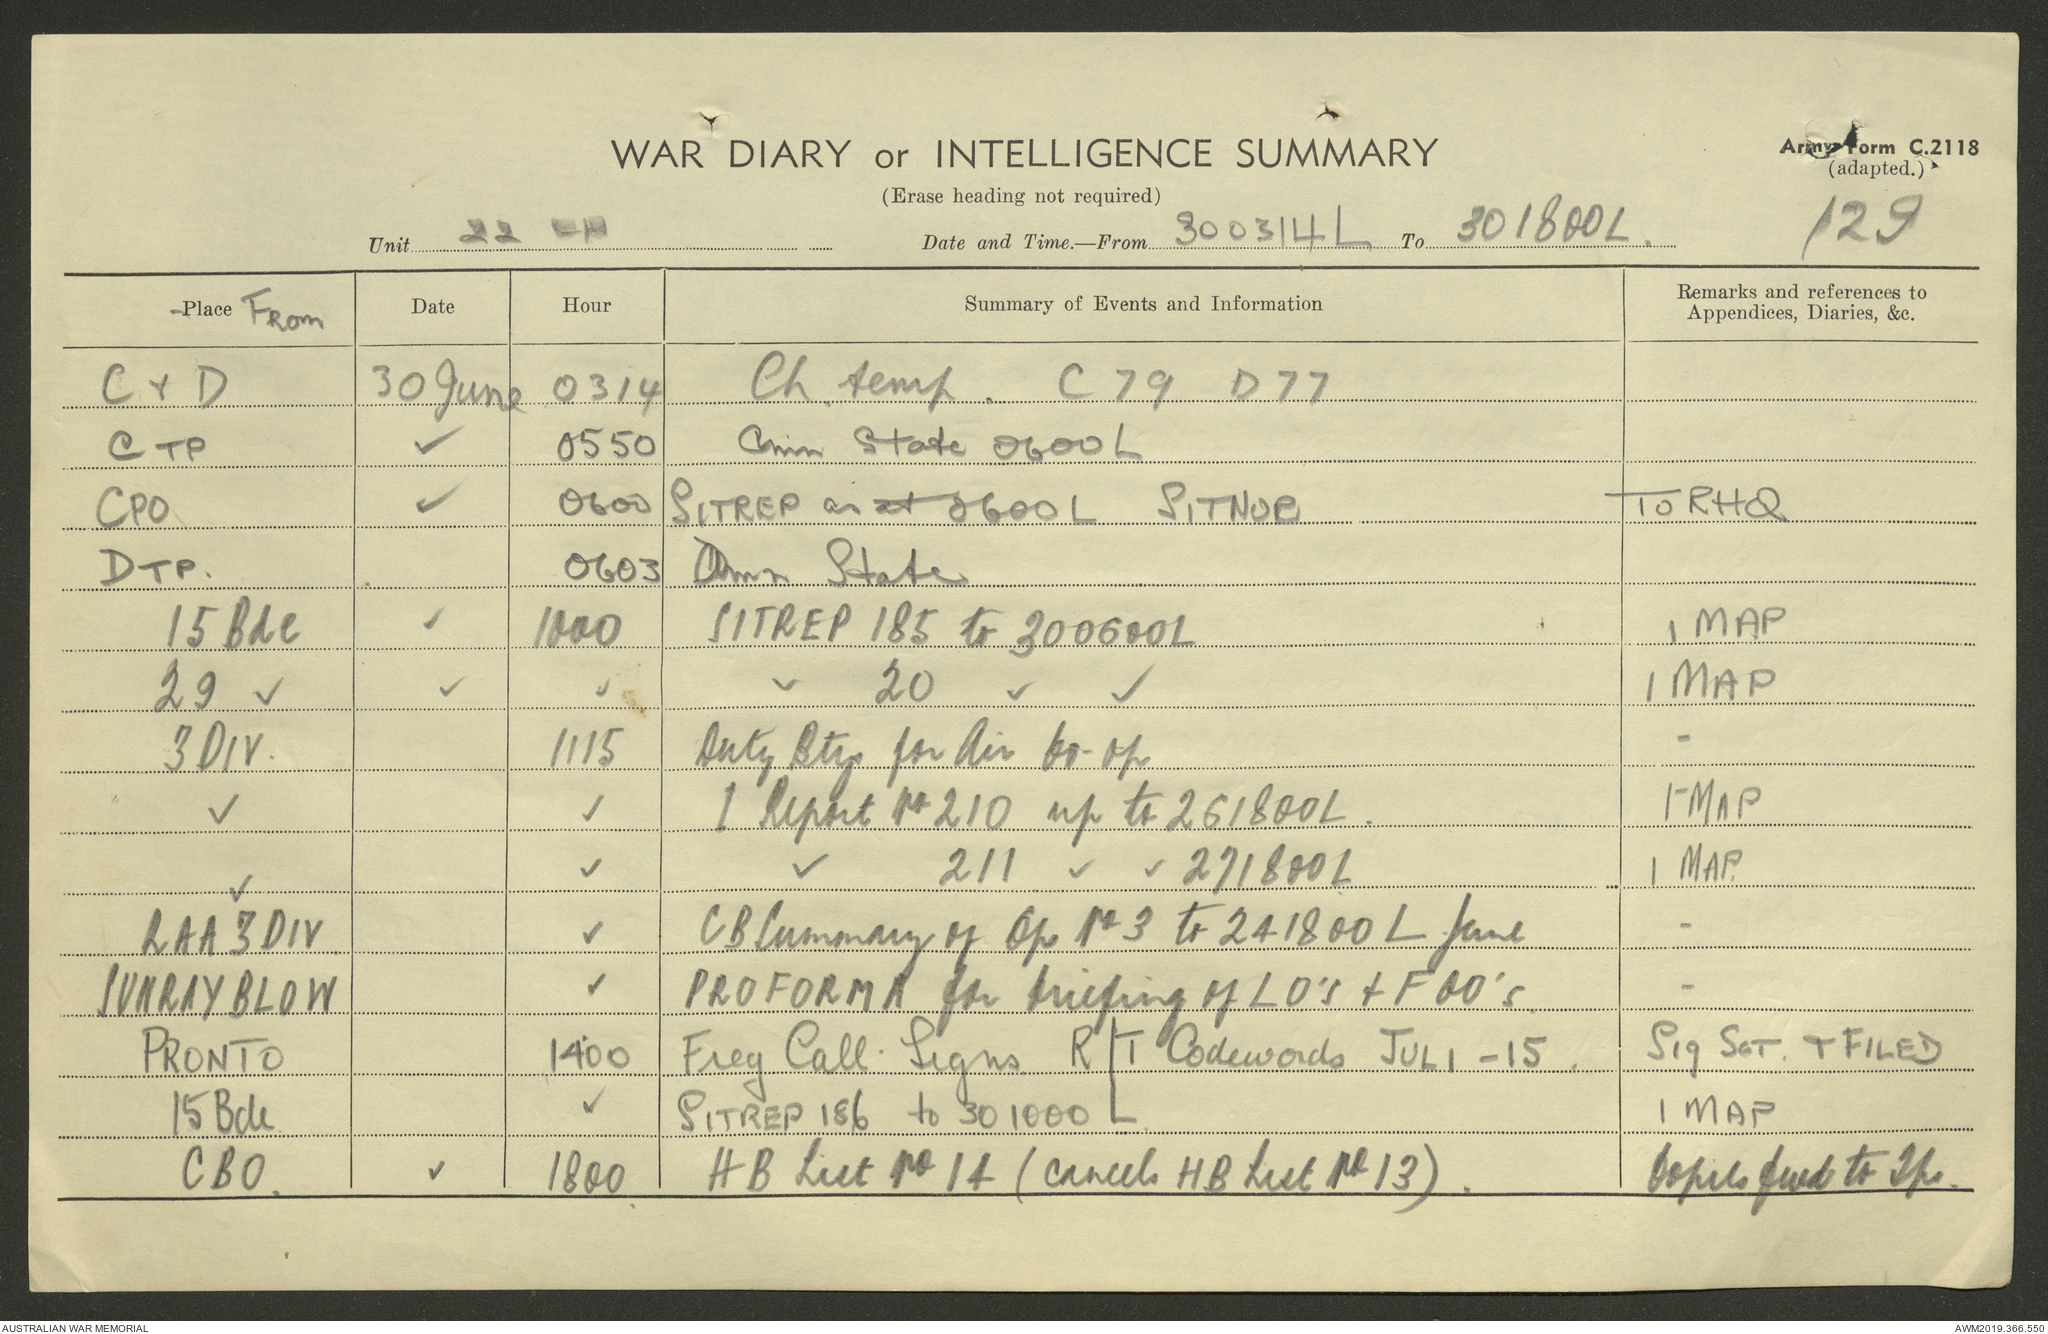 WAR DIARY or INTELLIGENCE SUMMARY
Army Form C.2118
(adapted.)
(Erase heading not required)
129
Unit 22 Date and Time.—From 300314L To 301800L.
Place From Date Hour Summary of Events and Information Remarks and references to Appendices, Diaries, &c.
C + D 30 June 0314 Ch. temp. C 79 D 77
C TP ✓ 0550 Amn State 0600L
CPO ✓ 0600 SITREP as at 0600L SITNOR To RHQ
D TP. 0603 Amn State
15 Bde ✓ 1000 SITREP 185 to 300600L 1 MAP
29 ✓ ✓ ✓ ✓ 20 ✓ ✓ 1 MAP
3 DIV. 1115 Duty Btys for Air Co-op -
✓ ✓ I Report No 210 up to 261800L. 1 MAP
✓ ✓ ✓ 211 ✓ ✓ 271800L 1 MAP
RAA 3 DIV ✓ CB Summary of Op No 3 to 241800L June -
SUNRAY BLOW ✓ PROFORMA for briefing of LO's + FOO's -
PRONTO 1400 Freq Call Signs R/T Codewords JUL 1-15. Sig SGT. + FILED
15 Bde ✓ SITREP 186 to 301000L 1 MAP
CBO. ✓ 1800 HB List No 14 (cancels HB List No 13). Copies fwd to Tps.
AUSTRALIAN WAR MEMORIAL
AWM2019.366.550